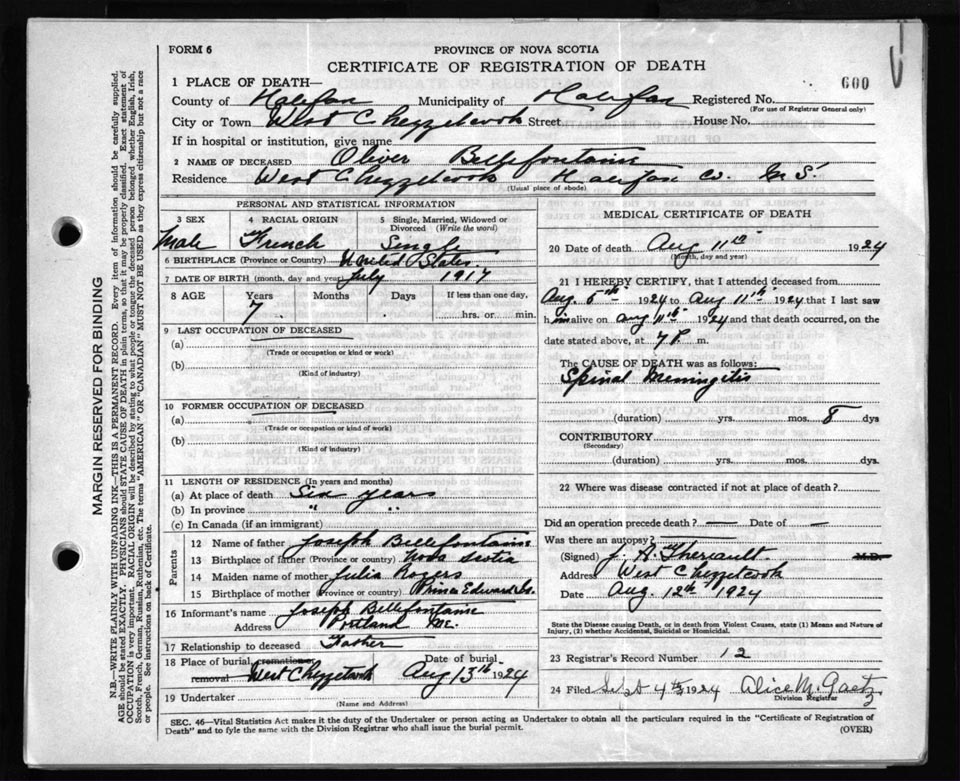 FORM 6
PROVINCE OF NOVA SCOTIA
CERTIFICATE OF REGISTRATION OF DEATH
600
1 PLACE OF DEATH—
County of Halifax Municipality of Halifax Registered No.
(For use of Registrar General only)
City or Town West Chezzetcook Street House No.
If in hospital or institution, give name
2 NAME OF DECEASED Oliver Bellefontaine
Residence West Chezzetcook Halifax Co. N S.
(Usual place of abode)
PERSONAL AND STATISTICAL INFORMATION
3 SEX 4 RACIAL ORIGIN 5 Single, Married, Widowed or Divorced (Write the word)
Male French Single
6 BIRTHPLACE (Province or Country) United States
7 DATE OF BIRTH (month, day and year) July 1917
8 AGE Years Months Days If less than one day,
7 hrs. or min.
9 LAST OCCUPATION OF DECEASED
(a)
(Trade or occupation or kind or work)
(b)
(Kind of industry)
10 FORMER OCCUPATION OF DECEASED
(a)
(Trade or occupation or kind or work)
(b)
(Kind of industry)
11 LENGTH OF RESIDENCE (In years and months)
(a) At place of death Six years
(b) In province " "
(c) In Canada (if an immigrant)
Parents
12 Name of father Joseph Bellefontaine
13 Birthplace of father (Province or country) Nova Scotia
14 Maiden name of mother Julia Rogers
15 Birthplace of mother (Province or country) Prince Edward Is.
16 Informant's name Joseph Bellefontaine
Address Portland Me.
17 Relationship to deceased Father
18 Place of burial, cremation or removal West Chezzetcook Date of burial Aug 13th 1924
19 Undertaker
(Name and Address)
MEDICAL CERTIFICATE OF DEATH
20 Date of death Aug 11th 1924
(Month, day and year)
21 I HEREBY CERTIFY, that I attended deceased from
Aug. 5th 1924 to Aug 11th 1924 that I last saw
him alive on Aug 11th 1924 and that death occurred, on
date stated above, at 7 P. m.
The CAUSE OF DEATH was as follows:
Spinal Meningitis
(duration) yrs. mos. 8 dys
CONTRIBUTORY
(Secondary)
(duration) yrs. mos. dys.
22 Where was disease contracted if not at place of death?
Did an operation precede death? — Date of —
Was there an autopsy? —
(Signed) J. A. Theriault M.D.
Address West Chezzetcook
Date Aug. 12th 1924
State the Disease causing Death, or in death from Violent Causes, state (1) Means and Nature of
Injury, (2) whether Accidental, Suicidal or Homicidal.
23 Registrar's Record Number 12
24 Filed Sept 4th 1924 Alice M. Gaetz
Division Registrar
SEC. 46—Vital Statistics Act makes it the duty of the Undertaker or person acting as Undertaker to obtain all the particulars required in the "Certificate of Registration of
Death" and to fyle the same with the Division Registrar who shall issue the burial permit.
(OVER)
MARGIN RESERVED FOR BINDING
N.B.—WRITE PLAINLY WITH UNFADING INK—THIS IS A PERMANENT RECORD. Every item of information should be carefully supplied.
AGE should be stated EXACTLY. PHYSICIANS should STATE CAUSE OF DEATH in plain terms, so that it may be properly classified. Exact statement of
OCCUPATION is very important. RACIAL ORIGIN will be described by stating to what people or tongue the deceased person belonged whether English, Irish,
Scotch, French, German, Russian, Ruthenian, etc. The terms "AMERICAN" OR "CANADIAN" MUST NOT BE USED as they express citizenship but not a race
or people. See instructions on back of Certificate.